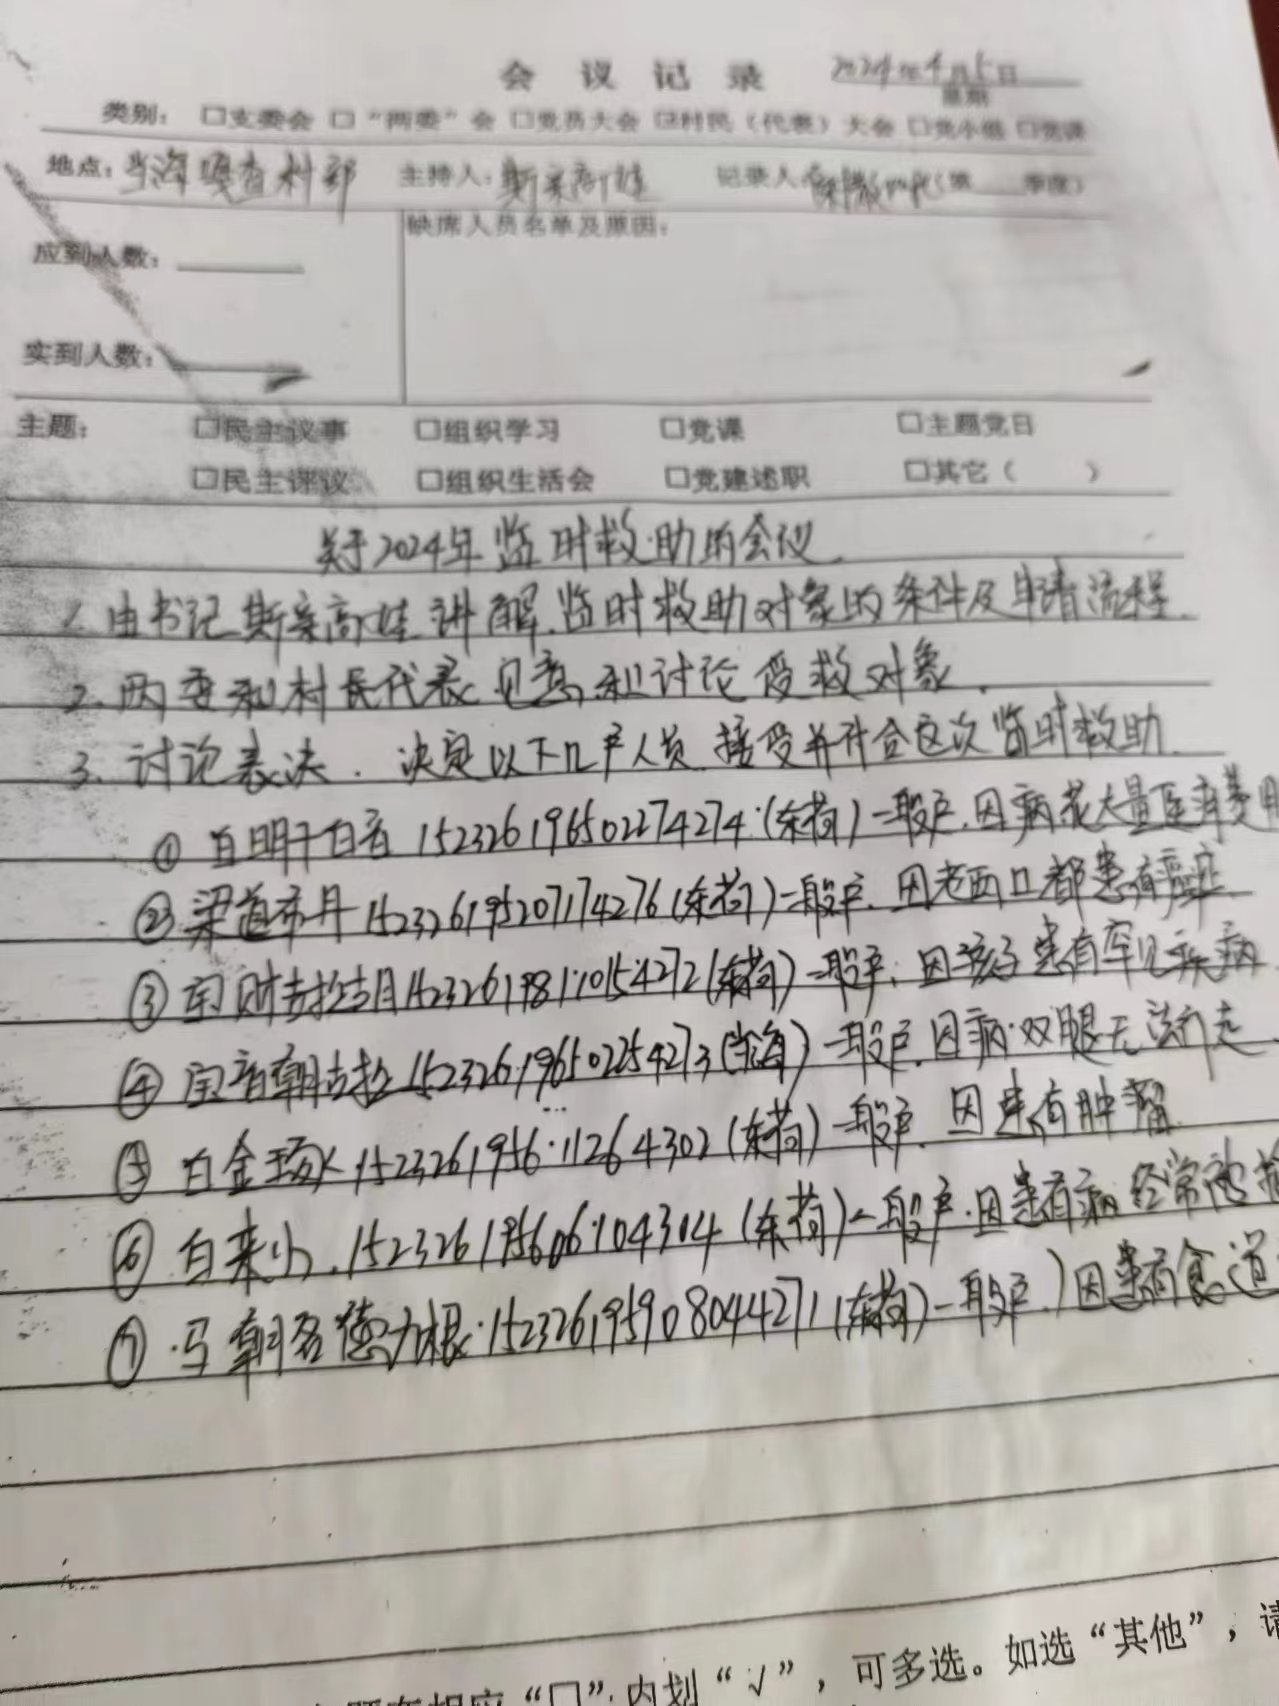 会 议 记 录 2024年4月5日
星期
类别： □支委会 □“两委”会 □党员大会 ☑村民（代表）大会 □党小组 □党课
地点：当海嘎查村部 主持人：斯琴高娃 记录人 （第 季度）
应到人数： 缺席人员名单及原因：
实到人数：
主题： □民主议事 □组织学习 □党课 □主题党日
□民主评议 □组织生活会 □党建述职 □其它（ ）
关于2024年监时救助的会议.
1. 由书记斯琴高娃讲解.监时救助对象的条件及申请流程.
2. 两委和村民代表 和讨论受救对象.
3. 讨论表决. 决定以下几户人员.接受并符合这次监时救助.
① 白明干白音 152326196502274274.(东荷)一般户.因病花大量医疗费用
② 梁道布丹 152326195207174276(东荷)一般户.因老两口都患有癌症
③ 152326198110154272(东荷)一般户.因孩子患有罕见疾病
④ 宝音朝古拉 152326196502254273(当海)一般户.因病.双腿无法行走.
⑤ 白金 152326195611264302(东荷)一般户.因患有肿瘤
⑥ 白来小.152326195606104314(东荷)一般户.因患有病.经常
⑦ 马朝名德力根.152326195908044271(东荷)一般户.)因患有食道
“□”内划“√”，可多选。如选“其他”，请